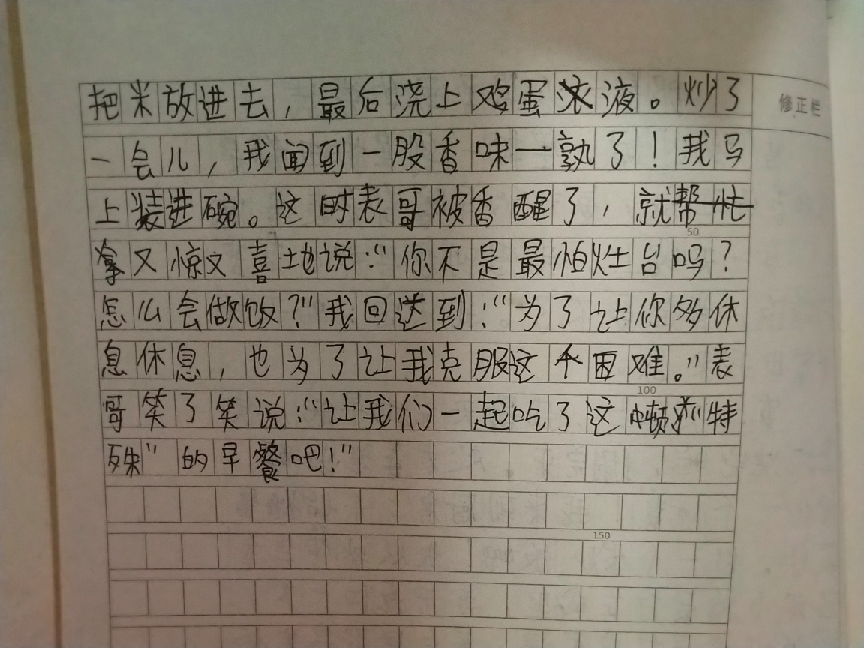 把米放进去，最后浇上鸡蛋液。炒了
修正栏
一会儿，我闻到一股香味一孰了！我马
上装进碗。这时表哥被香醒了，就帮忙
50
拿又惊又喜地说：“你不是最怕灶台吗？
怎么会做饭？”我回达到：“为了让你多休
息休息，也为了让我克服这个困难。”表
100
哥笑了笑说：“让我们一起吃了这顿“特
殊”的早餐吧！”
150